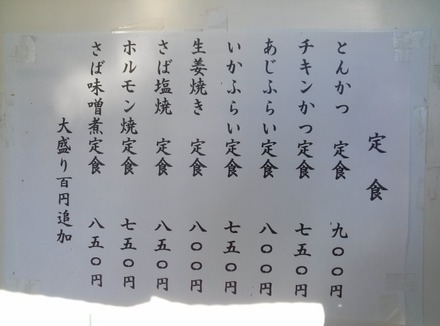 定食
とんかつ 定食 九〇〇円
チキンかつ定食 七五〇円
あじふらい定食 八〇〇円
いかふらい定食 七五〇円
生姜焼き 定食 八〇〇円
さば塩焼 定食 八五〇円
ホルモン焼定食 七五〇円
さば味噌煮定食 八五〇円
大盛り百円追加